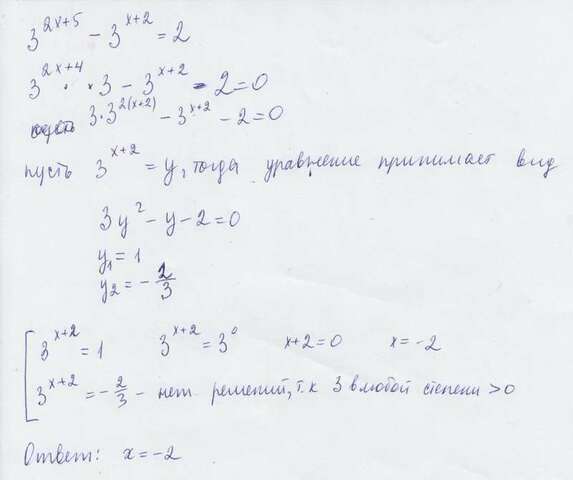 3^{2x+5} - 3^{x+2} = 2
3^{2x+4} · 3 - 3^{x+2} - 2 = 0
3·3^{2(x+2)} - 3^{x+2} - 2 = 0
пусть 3^{x+2} = y, тогда уравнение принимает вид
3y² - y - 2 = 0
y₁ = 1
y₂ = -2/3
[ 3^{x+2} = 1 3^{x+2} = 3⁰ x+2=0 x=-2
3^{x+2} = -2/3 - нет решений, т.к 3 в любой степени > 0
Ответ: x = -2